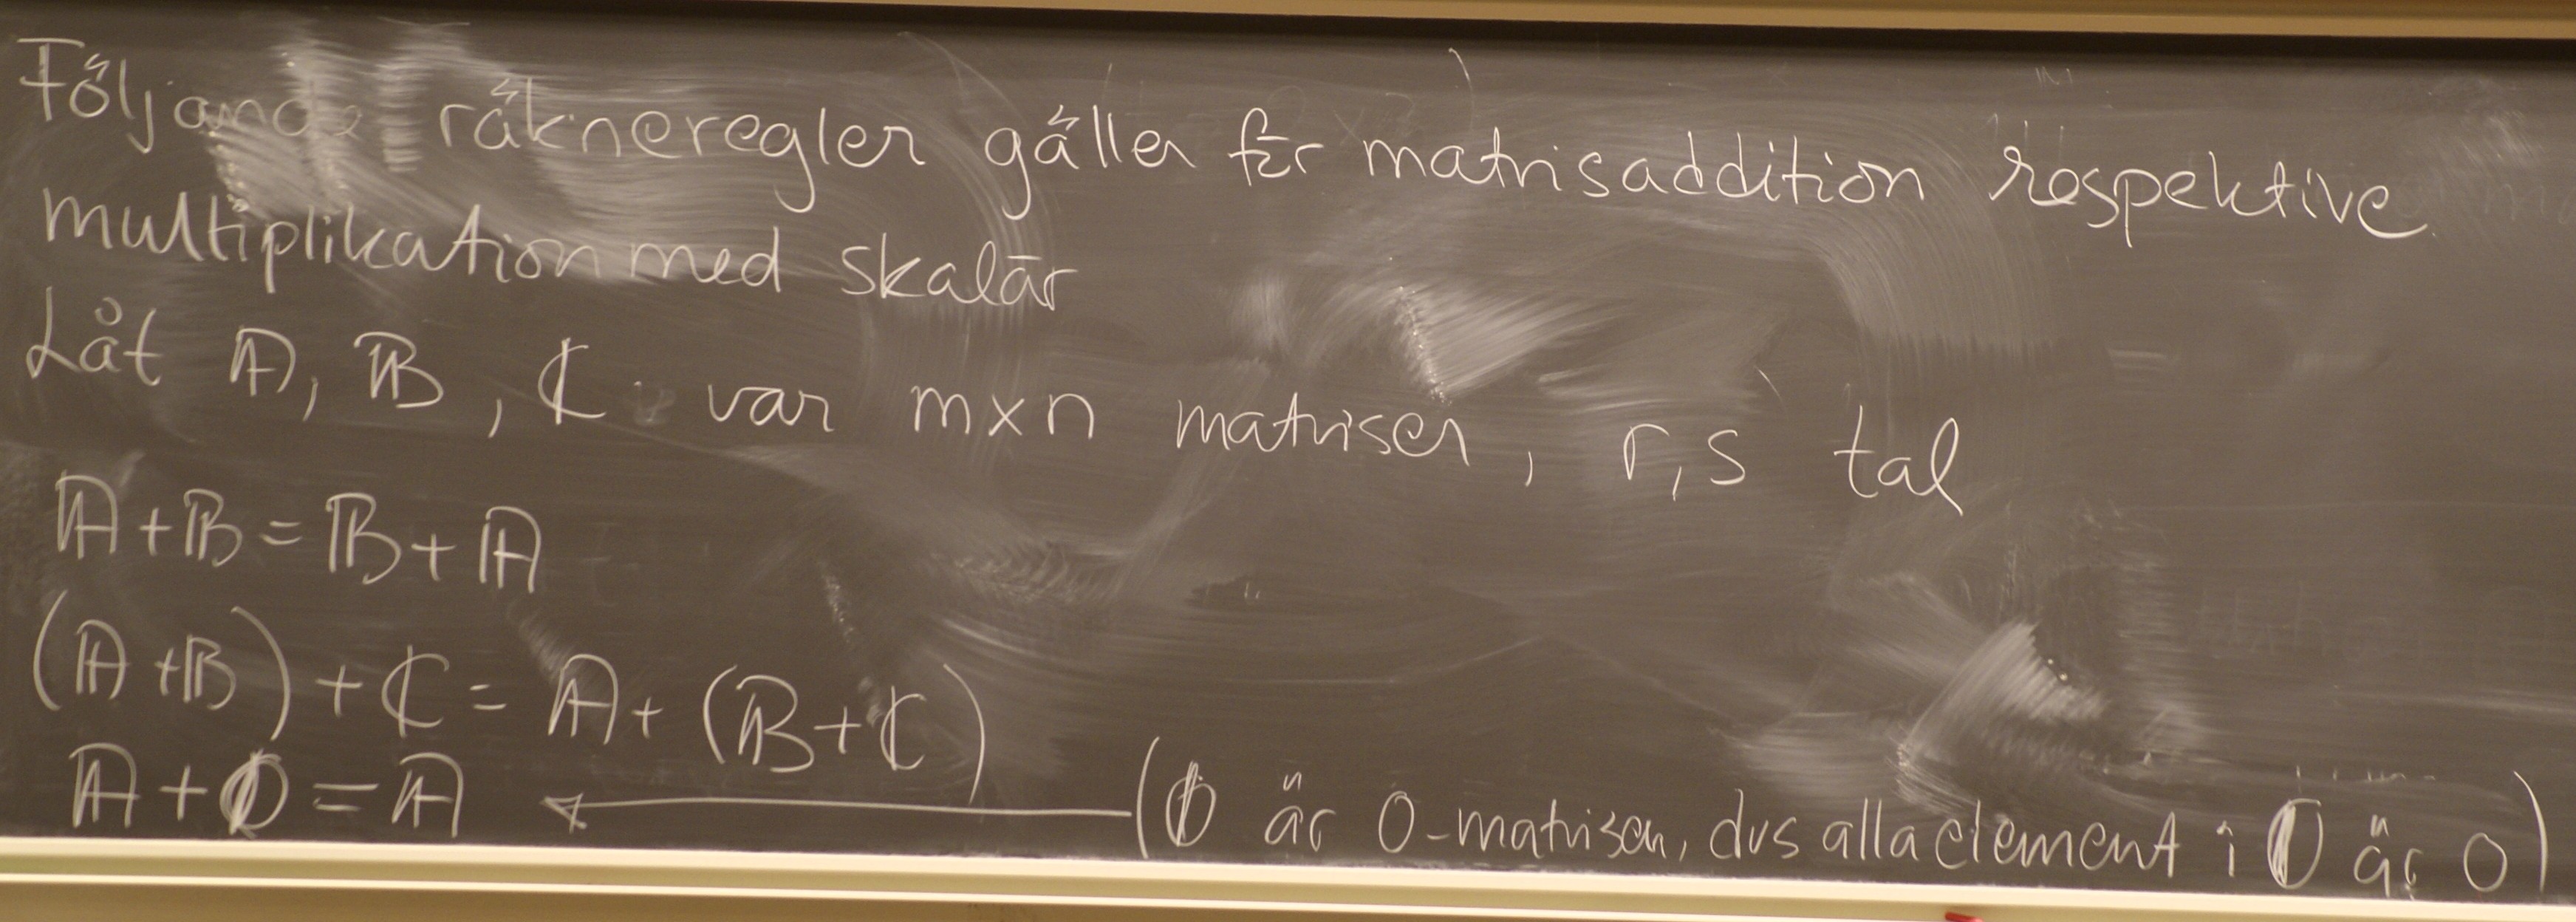 Följande räkneregler gäller för matrisaddition respektive
multiplikation med skalär
Låt 𝔸, 𝔹, ℂ var m×n matriser, r,s tal
𝔸+𝔹=𝔹+𝔸
(𝔸+𝔹)+ℂ=𝔸+(𝔹+ℂ)
𝔸+𝕆=𝔸 ← (𝕆 är 0-matrisen, dvs alla element i 𝕆 är 0)